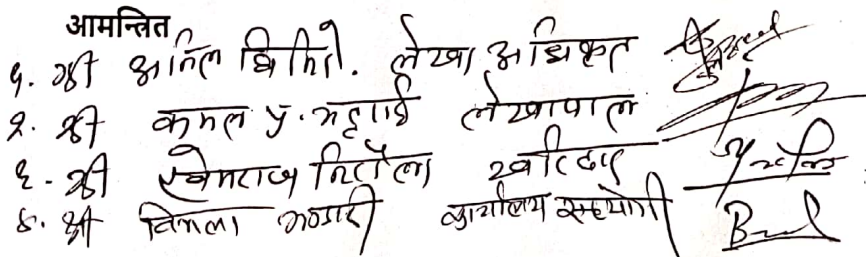 आमन्त्रित
१. श्री अनिल घिमिरे. लेखा अधिकृत
२. श्री कमल प्र. भट्टराई लेखापाल
३. श्री खेमराज निरौला खरिदार
४. श्री विमला भण्डारी कार्यालय सहयोगी